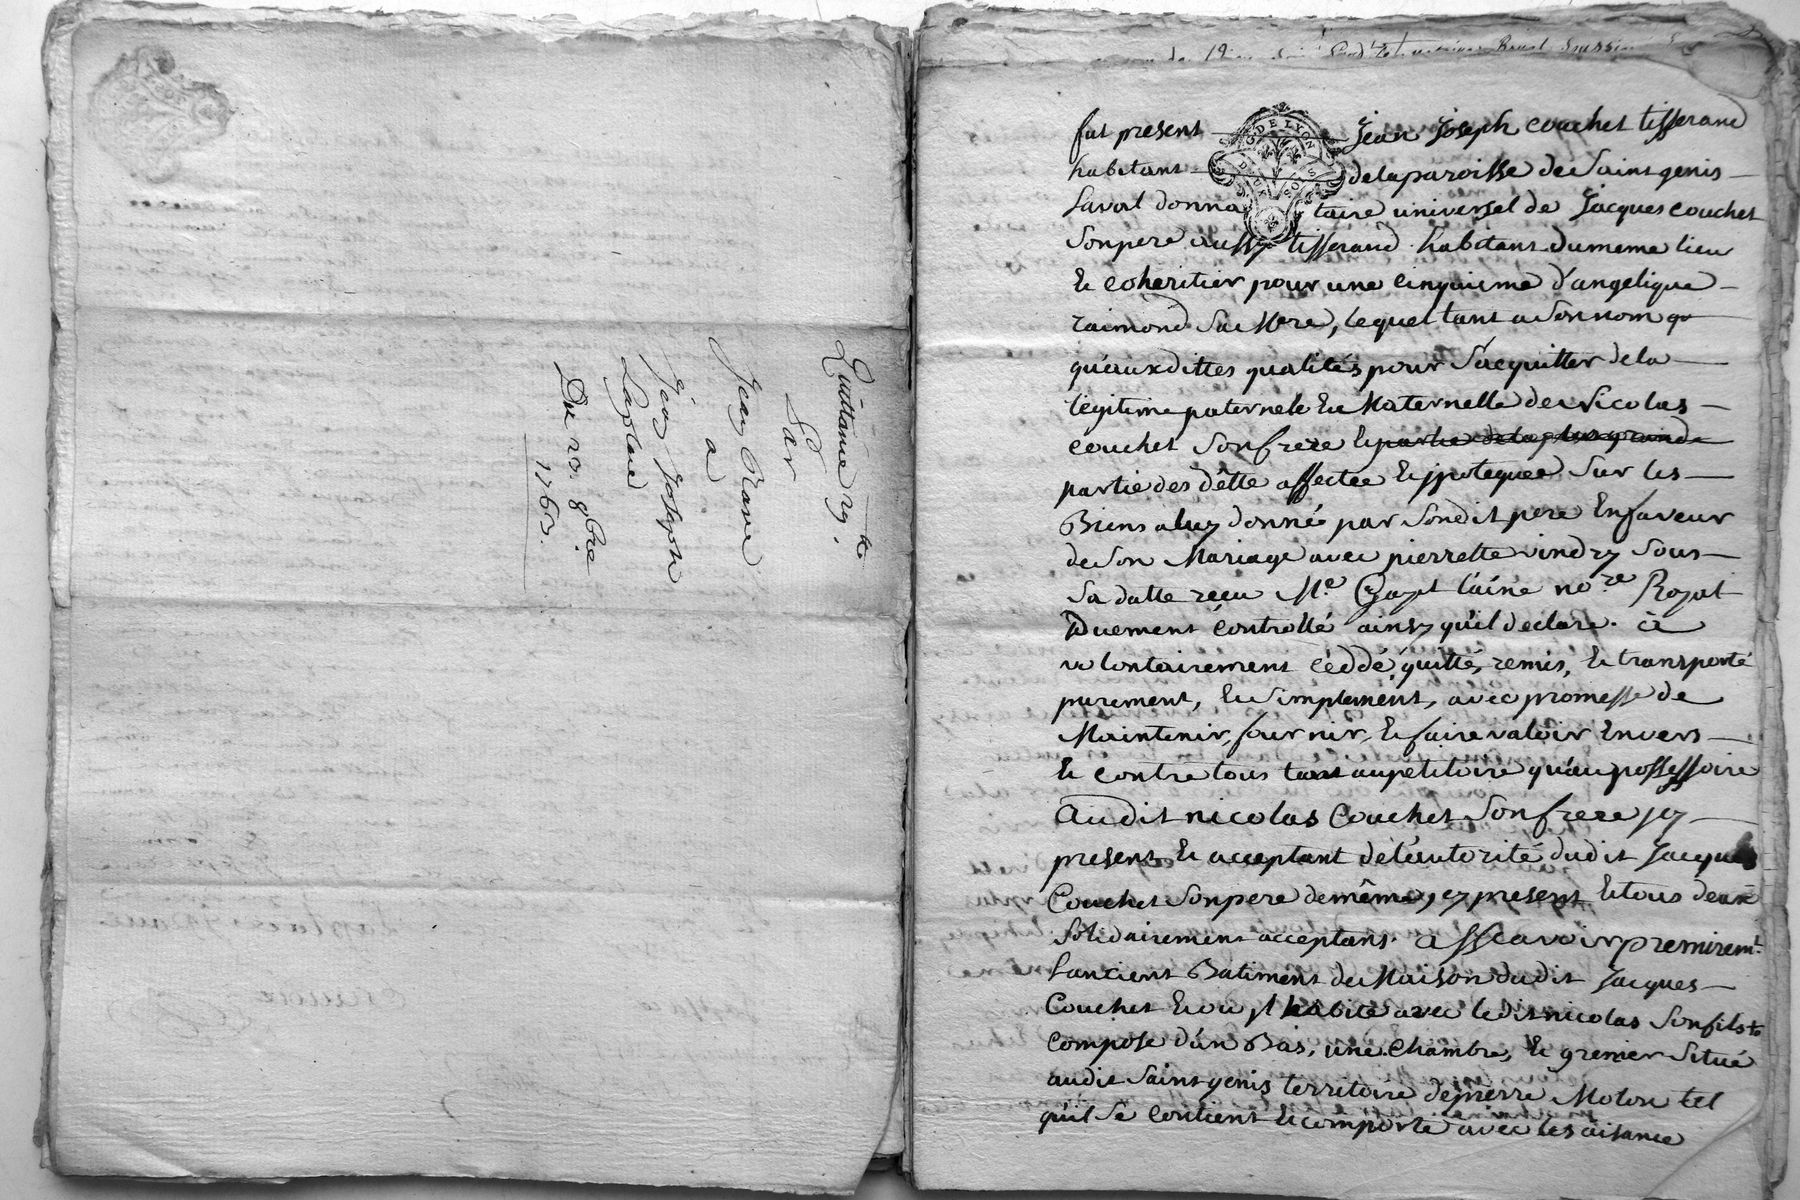 Quittance 29.
Par
Jean Rave
a
Jean Joseph
Laplace
Du 20. 8bre
1763.
G. DE LYON
DEUX SOLS
fut present Jean Joseph couchet tisserand
habitant delaparoisse de Saint genis
Laval donnataire universel de Jacques couchet
Son pere aussy tisserand habitant dumeme lieu
& coheritier pour une cinquieme d'angelique
raimond Sa Mere, lequel tant a Son nom qu
qu'auxdittes qualités pour S'acquitter dela
legitime paternele & Maternelle de Nicolas
couchet Son frere & partie de la plus grande
partie des dette affectée & jpotequée Sur les
Biens a luy donné par Sondit pere Enfaveur
de Son Mariage avec pierrette vindry Sous
Sa datte recu Me. l'ainé no.re Royal
Duement controllé ainsy qu'il déclare. a
volontairement céddé, quitté, remis, & transporté
purement, & Simplement, avec promesse de
Maintenir, fournir, & faire valoir Envers
& contre tous tant aupetitoire qu'au possessoire
Audit nicolas Couchet Son frere jcy
present & acceptant de l'autorité dudit Jacques
Couchet Son pere de même jcy present & tous deux
Solidairement acceptans. assçavoir premirem.t
L'ancient Batiment de Maison dudit Jacques
Couchet & ou jl habite avec ledit nicolas Son fils
composé d'un Bas, une Chambre, & grenier Situé
audit Saint genis territoire de pierre Molon tel
qu'il Se contient & comporte avec les aisance